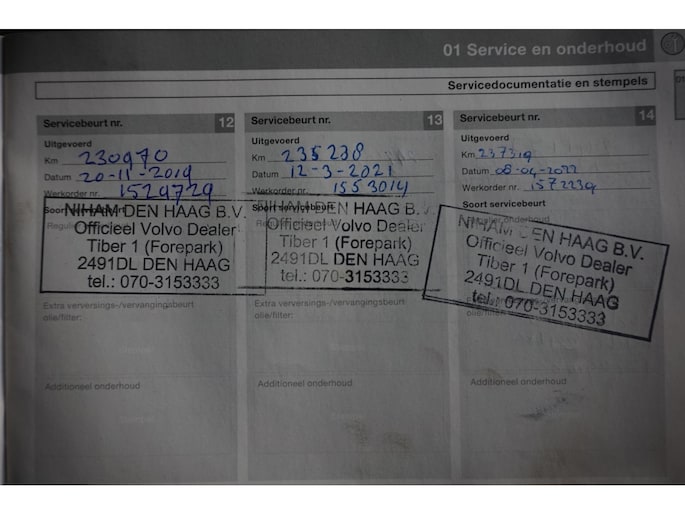 01 Service en onderhoud
01
Servicedocumentatie en stempels
Servicebeurt nr. 12
Uitgevoerd
Km 230970
Datum 20-11-2019
Werkorder nr. 1529729
Soort servicebeurt
NIHAM DEN HAAG B.V.
Officieel Volvo Dealer
Tiber 1 (Forepark)
2491DL DEN HAAG
tel.: 070-3153333
Extra verversings-/vervangingsbeurt
olie/filter:
Additioneel onderhoud
Servicebeurt nr. 13
Uitgevoerd
Km 235238
Datum 12-3-2021
Werkorder nr. 1553014
Soort servicebeurt
NIHAM DEN HAAG B.V.
Officieel Volvo Dealer
Tiber 1 (Forepark)
2491DL DEN HAAG
tel.: 070-3153333
Extra verversings-/vervangingsbeurt
olie/filter:
Additioneel onderhoud
Servicebeurt nr. 14
Uitgevoerd
Km 237319
Datum 08-04-2022
Werkorder nr. 1572239
Soort servicebeurt
NIHAM DEN HAAG B.V.
Officieel Volvo Dealer
Tiber 1 (Forepark)
2491DL DEN HAAG
tel.: 070-3153333
olie/filter:
Additioneel onderhoud